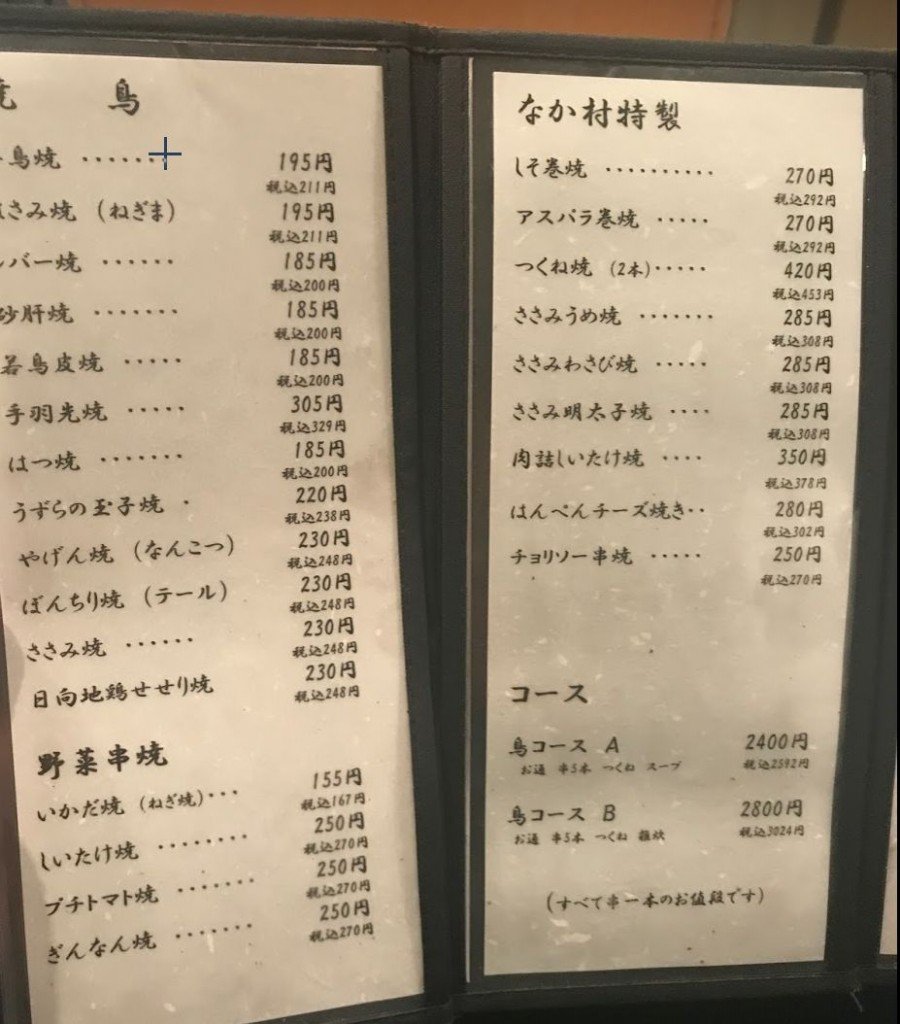 焼 鳥
鳥焼 ······· 195円
税込211円
はさみ焼 (ねぎま) 195円
税込211円
レバー焼 ······ 185円
税込200円
砂肝焼 ······· 185円
税込200円
若鳥皮焼 ····· 185円
税込200円
手羽先焼 ····· 305円
税込329円
はつ焼 ······· 185円
税込200円
うずらの玉子焼 · 220円
税込238円
やげん焼 (なんこつ) 230円
税込248円
ぼんちり焼 (テール) 230円
税込248円
ささみ焼 ······ 230円
税込248円
日向地鶏せせり焼 230円
税込248円
野菜串焼
いかだ焼 (ねぎ焼)··· 155円
税込167円
しいたけ焼 ········ 250円
税込270円
プチトマト焼 ······· 250円
税込270円
ぎんなん焼 ······· 250円
税込270円
なか村特製
しそ巻焼 ·········· 270円
税込292円
アスパラ巻焼 ····· 270円
税込292円
つくね焼 (2本)····· 420円
税込453円
ささみうめ焼 ······· 285円
税込308円
ささみわさび焼 ····· 285円
税込308円
ささみ明太子焼 ···· 285円
税込308円
肉詰しいたけ焼 ···· 350円
税込378円
はんぺんチーズ焼き·· 280円
税込302円
チョリソー串焼 ····· 250円
税込270円
コース
鳥コース A 2400円
お通 串5本 つくね スープ 税込2592円
鳥コース B 2800円
お通 串5本 つくね 雑炊 税込3024円
(すべて串一本のお値段です)